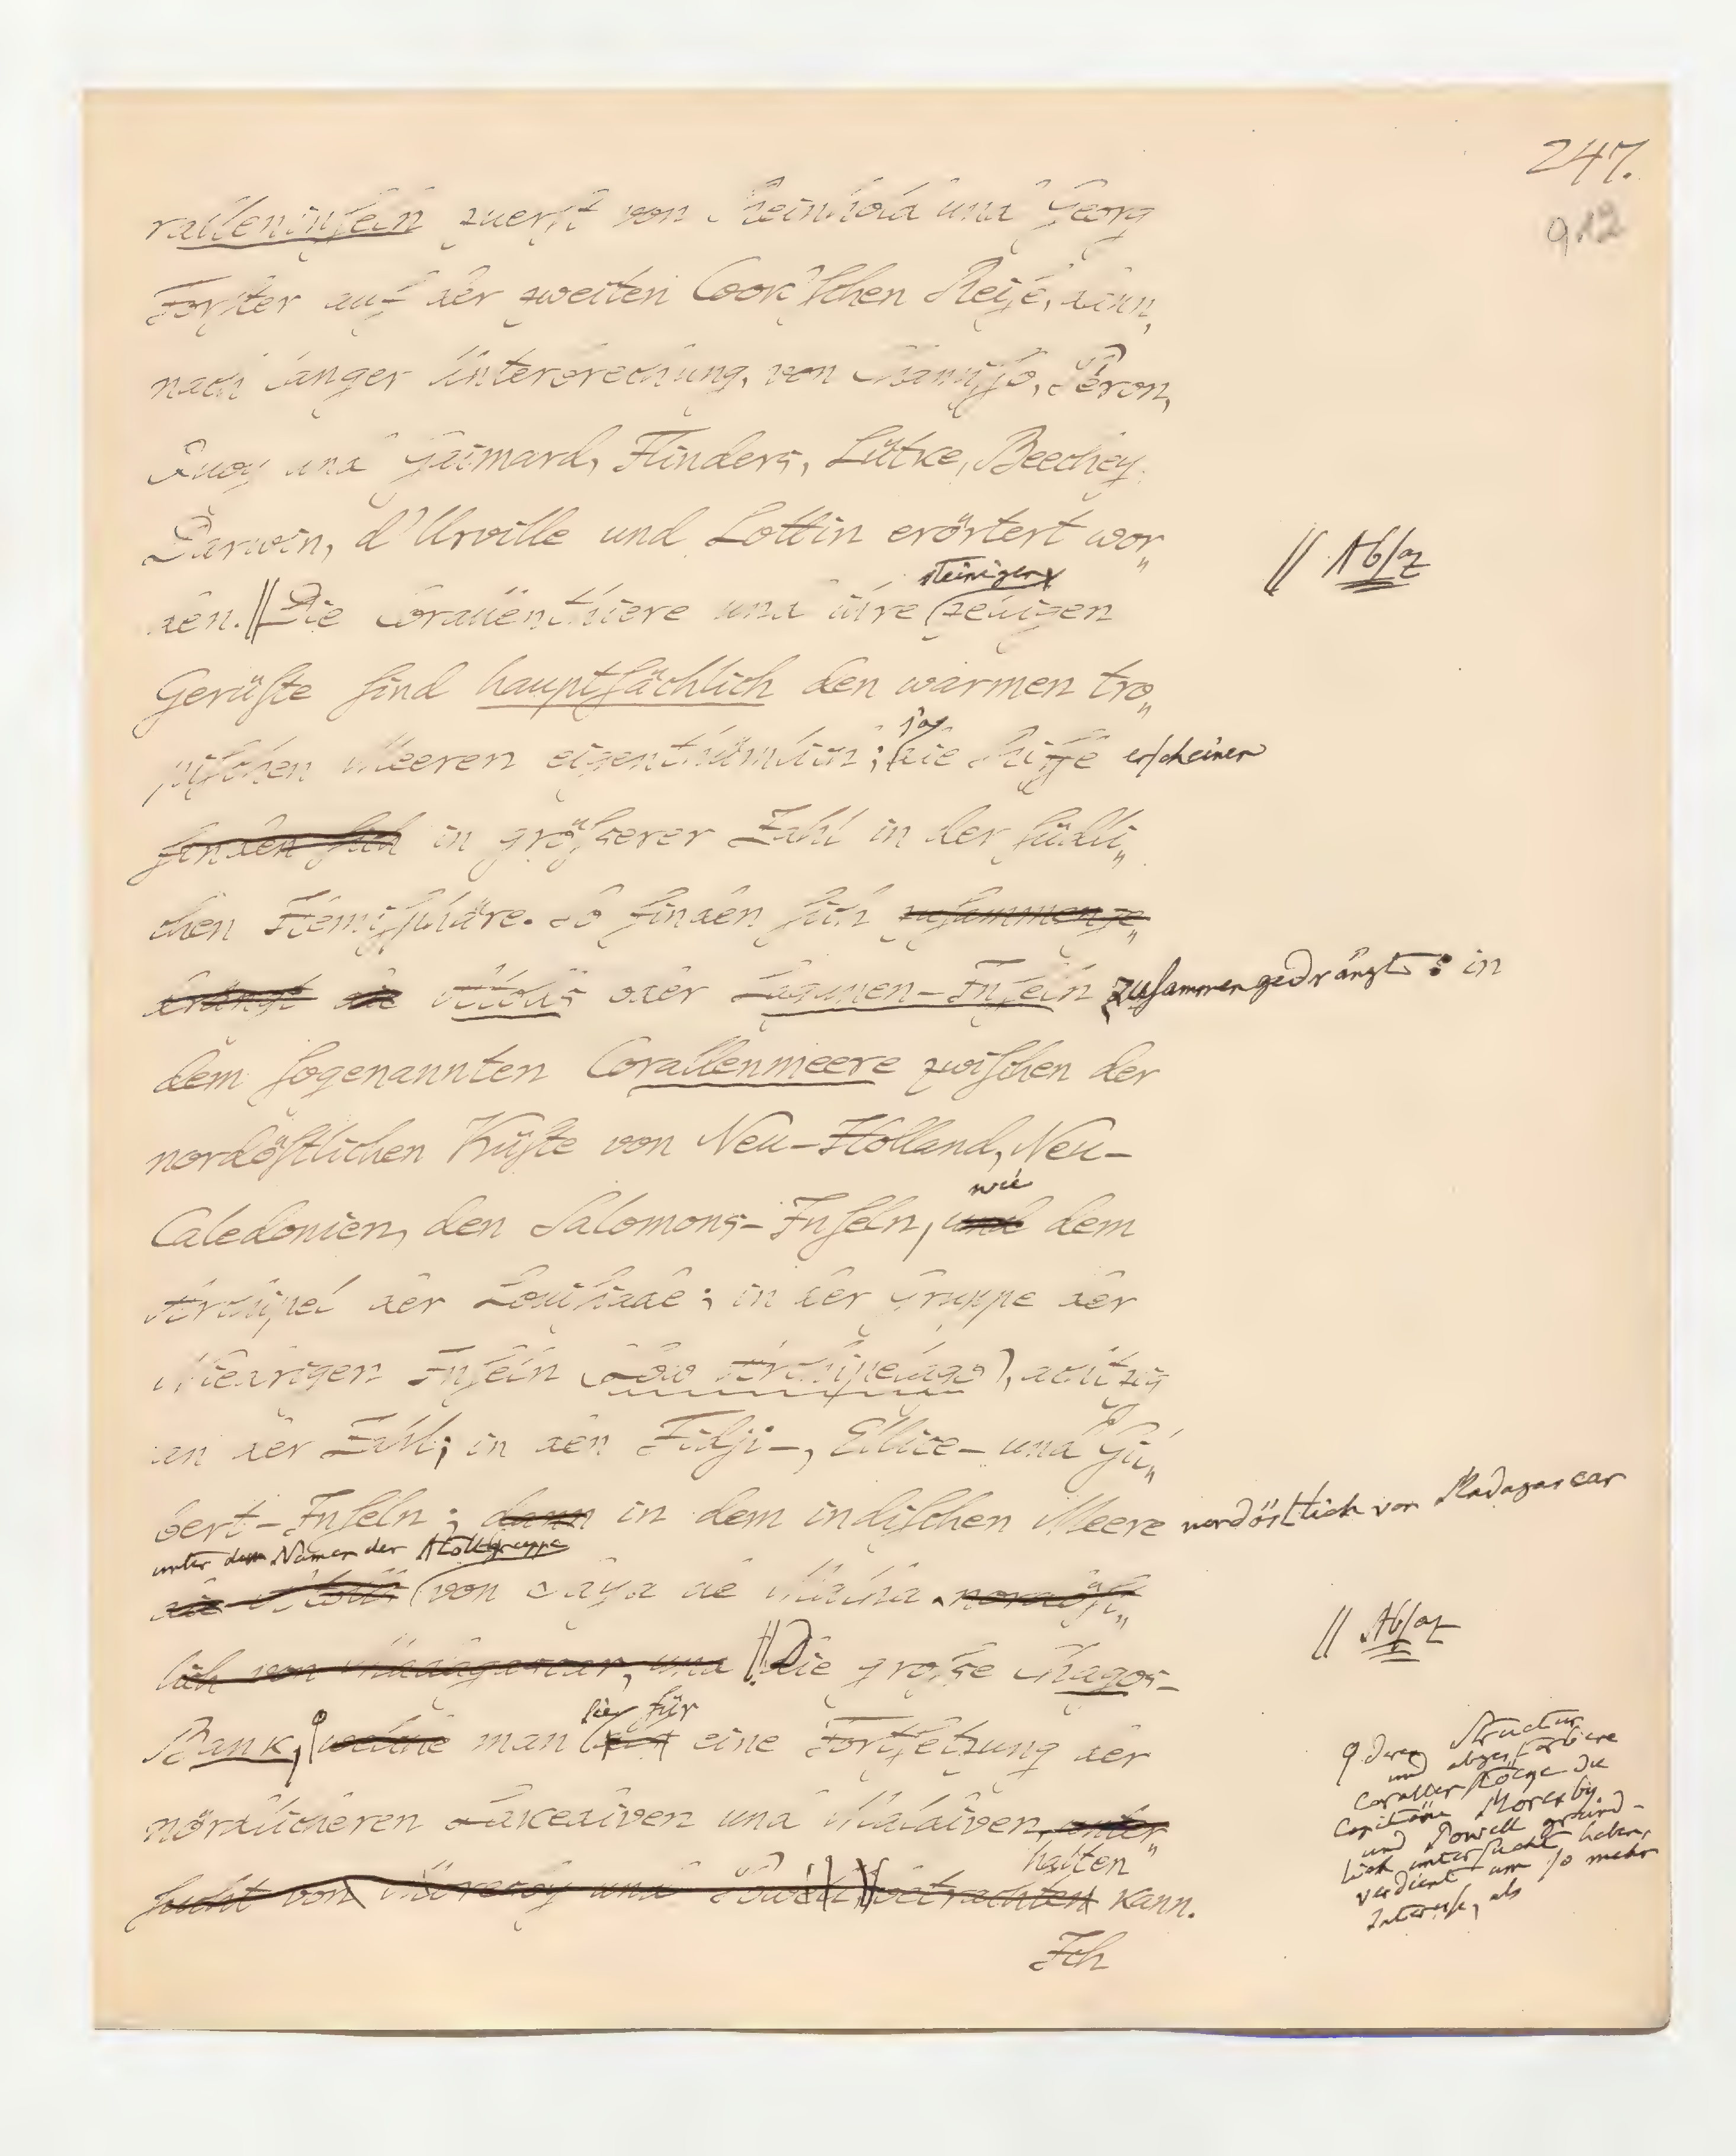 247.
912
ralleninseln zuerst von Reinhold und Georg
Forster auf der zweiten Cook'schen Reise, dann,
nach langer Unterbrechung, von Chamisso, Péron,
Quoy und Gaimard, Flinders, Lütke, Beechey,
Darwin, d'Urville und Lottin erörtert wor„
// Absaz
steiniger
den. // Die Corallenthiere und ihre zelligen
Gerüste sind hauptsächlich den warmen tro„
ja
pischen Meeren eigenthümlich; die Riffe erscheinen
finden sich in größerer Zahl in der südli„
chen Hemisphäre. So finden sich zusammenge„
drängt die Atolls oder Lagunen-Inseln zusammengedrängt: in
dem sogenannten Corallenmeere zwischen der
nordöstlichen Küste von Neu-Holland, Neu-
wie
Caledonien, den Salomons-Inseln, und dem
Archipel der Louisiade; in der Gruppe der
Niedrigen Inseln (Low Archipelago), achtzig
an der Zahl; in den Fidji-, Ellice- und Gil„
bert-Inseln; dann in dem indischen Meere nordöstlich von Madagascar
unter dem Namen der Atollgruppe
die Atolls von Saya de Malha. nordöst„
lich von Madagascar, und // Die große Chagos-
// Absaz
sie für
Bank, welche man als eine Fortsetzung der
nördlicheren Lakediven und Malediven, unter„
halten
sucht von Moresby und Powell betrachten kann.
Ich
deren Structur
und abgestorbene
Corallenstöcke die
Capitäne Moresby
und Powell gründ-
lich untersucht haben,
verdient um so mehr
Interesse, als